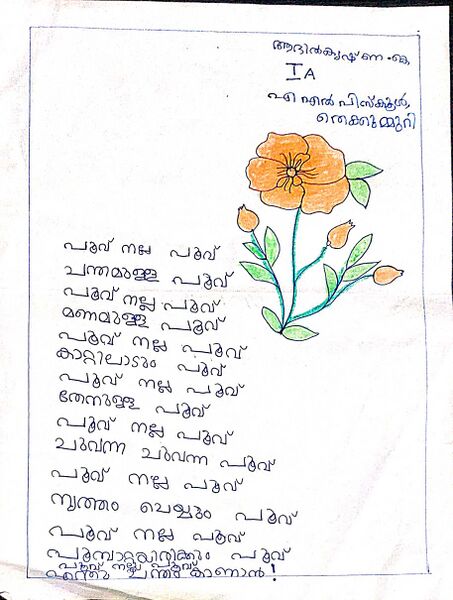 ആദിൽകൃഷ്ണ.കെ
I A
എ എൽ പി സ്കൂൾ,
തെക്കുമ്മുറി
പൂവ് നല്ല പൂവ്
ചന്തമുള്ള പൂവ്
പൂവ് നല്ല പൂവ്
മണമുള്ള പൂവ്
പൂവ് നല്ല പൂവ്
കാറ്റിലാടും പൂവ്
പൂവ് നല്ല പൂവ്
തേനുള്ള പൂവ്
പൂവ് നല്ല പൂവ്
ചുവന്ന ചുവന്ന പൂവ്
പൂവ് നല്ല പൂവ്
നൃത്തം ചെയ്യും പൂവ്
പൂവ് നല്ല പൂവ്
പൂമ്പാറ്റയിരിക്കും പൂവ്
പൂവ് നല്ല പൂവ്
എന്തു ചന്തം കാണാൻ!